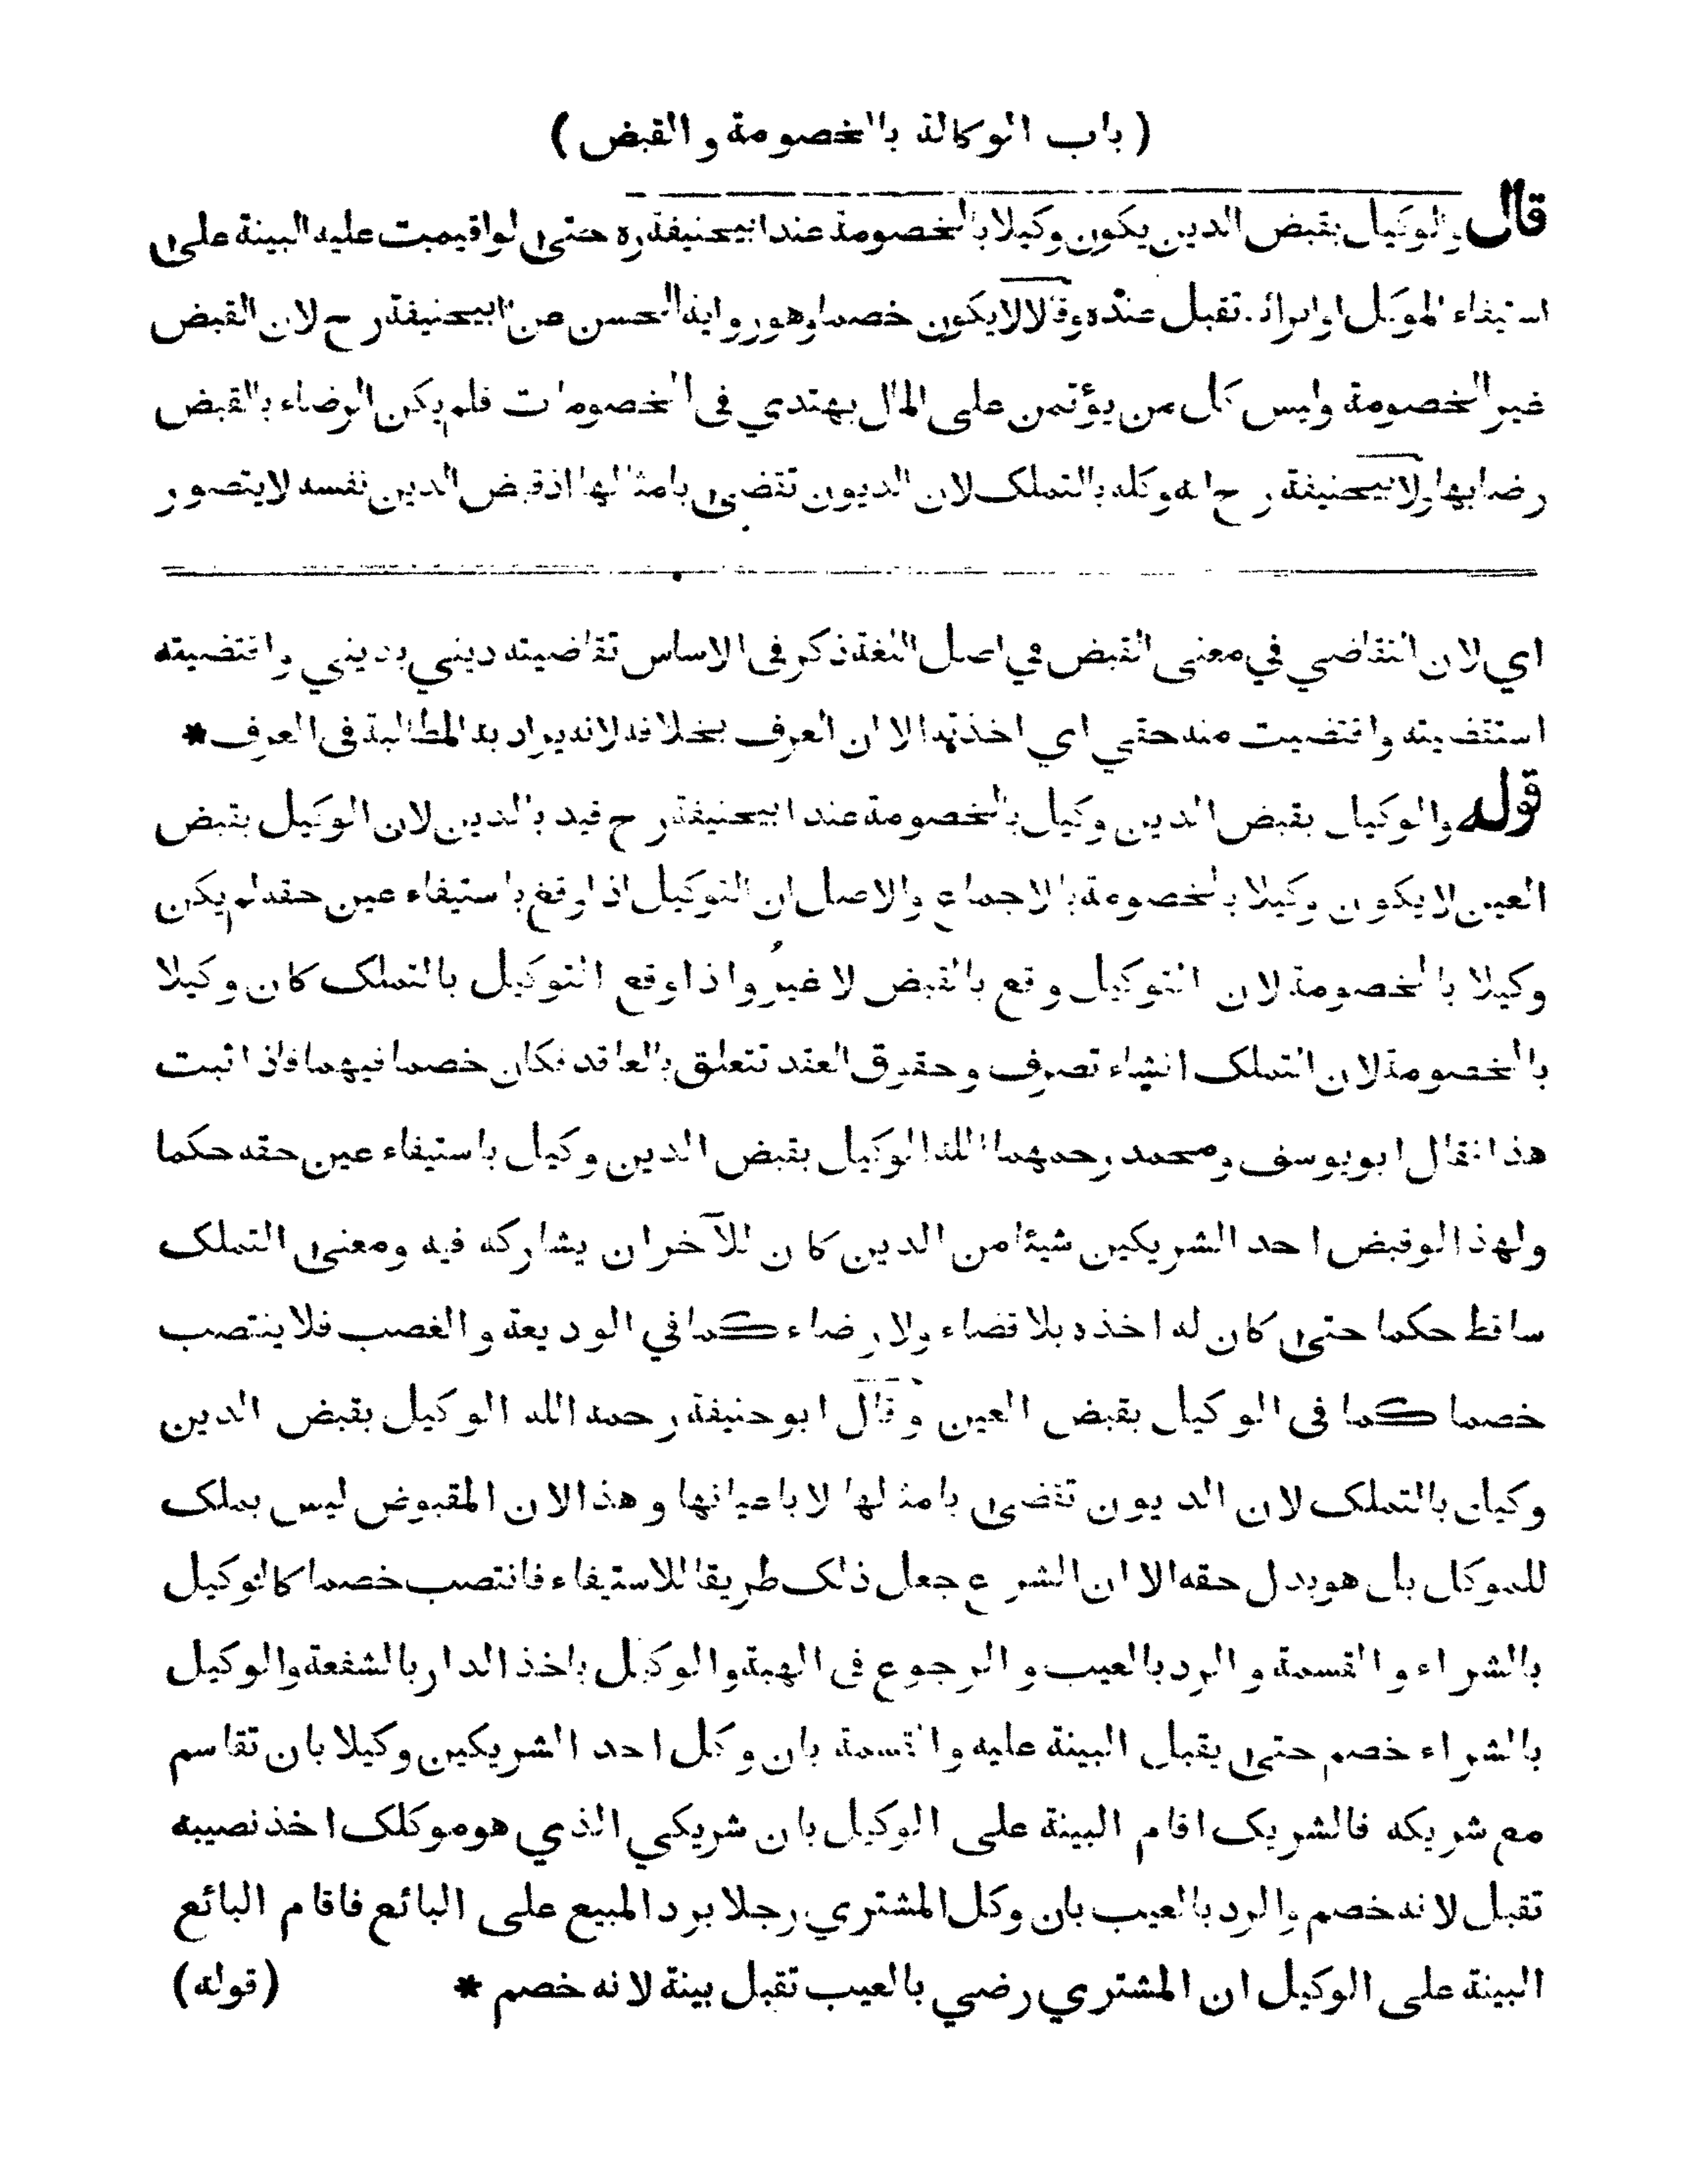 ( باب الوكالة بالخصومة والقبض )
قال والوكيل بقبض الدين يكون وكيلا بالخصومة عند ابيحنيفة ره حتى لو اقيمت عليه البينة على
استيفاء الموكل او ابرائه تقبل عنده وقالا لا يكون خصما وهو رواية الحسن عن ابيحنيفة رح لان القبض
غير الخصومة وليس كل من يؤتمن على المال يهتدي في الخصومات فلم يكن الرضاء بالقبض
رضا بها ولابيحنيفة رح انه وكله بالتملك لان الديون تقضى بامثالها اذ قبض الدين نفسه لا يتصور
اي لان التقاضي في معنى القبض في اصل اللغة ذكر في الاساس تقاضيته ديني بديني واقتضيته
استقضيته واقتضيت منه حقي اي اخذته الا ان العرف بخلافه لانه يراد به المطالبة في العرف *
قوله والوكيل بقبض الدين وكيل بالخصومة عند ابيحنيفة رح قيد بالدين لان الوكيل بقبض
العين لا يكون وكيلا بالخصومة بالاجماع والاصل ان التوكيل اذا وقع باستيفاء عين حقه لم يكن
وكيلا بالخصومة لان التوكيل وقع بالقبض لا غير واذا وقع التوكيل بالتملك كان وكيلا
بالخصومة لان التملك انشاء تصرف وحقوق العقد تتعلق بالعاقد فكان خصما فيهما فاذا ثبت
هذا فقال ابو يوسف ومحمد رحمهما الله الوكيل بقبض الدين وكيل باستيفاء عين حقه حكما
ولهذا لو قبض احد الشريكين شيئا من الدين كان للآخر ان يشاركه فيه ومعنى التملك
ساقط حكما حتى كان له اخذه بلا قضاء ولا رضاء كما في الوديعة والغصب فلا ينتصب
خصما كما في الوكيل بقبض العين وقال ابو حنيفة رحمه الله الوكيل بقبض الدين
وكيل بالتملك لان الديون تقضى بامثالها لا باعيانها وهذا لان المقبوض ليس بملك
للموكل بل هو بدل حقه الا ان الشرع جعل ذلك طريقا للاستيفاء فانتصب خصما كالوكيل
بالشراء والقسمة والرد بالعيب والرجوع في الهبة والوكيل باخذ الدار بالشفعة والوكيل
بالشراء خصم حتى يقبل البينة عليه والقسمة بان وكل احد الشريكين وكيلا بان تقاسم
مع شريكه فالشريك اقام البينة على الوكيل بان شريكي الذي هو موكلك اخذ نصيبه
تقبل لانه خصم والرد بالعيب بان وكل المشتري رجلا برد المبيع على البائع فاقام البائع
البينة على الوكيل ان المشتري رضي بالعيب تقبل بينة لانه خصم * (قوله)